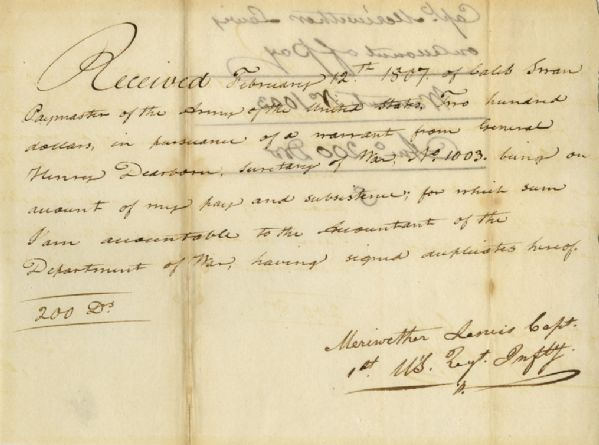 Received February 12th 1807. of Caleb Swan
Paymaster of the Army of the United States, Two hundred
dollars, in pursuance of a warrant from General
Henry Dearborn, secretary of War, No. 1003. being on
account of my pay and subsistence; for which sum
I am accountable to the Accountant of the
Department of War, having signed duplicates hereof.
200 Ds
Meriwether Lewis Capt.
1st US. Regt. Infty.
Capt. Meriwether Lewis
on account of pay
No. 1003